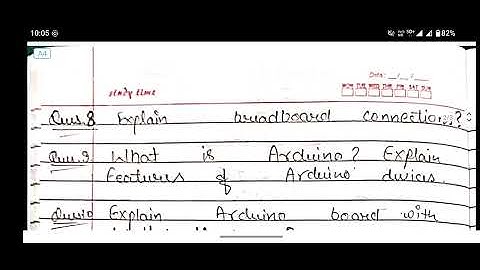 10:05
82%
A4
study time
Date: __/__/__
MON TUE WED THE FRI SAT SUN
Ques.8 Explain breadboard connections?
Ques.9 What is Arduino? Explain
Features of Arduino divices.
Ques.10 Explain Arduino board with